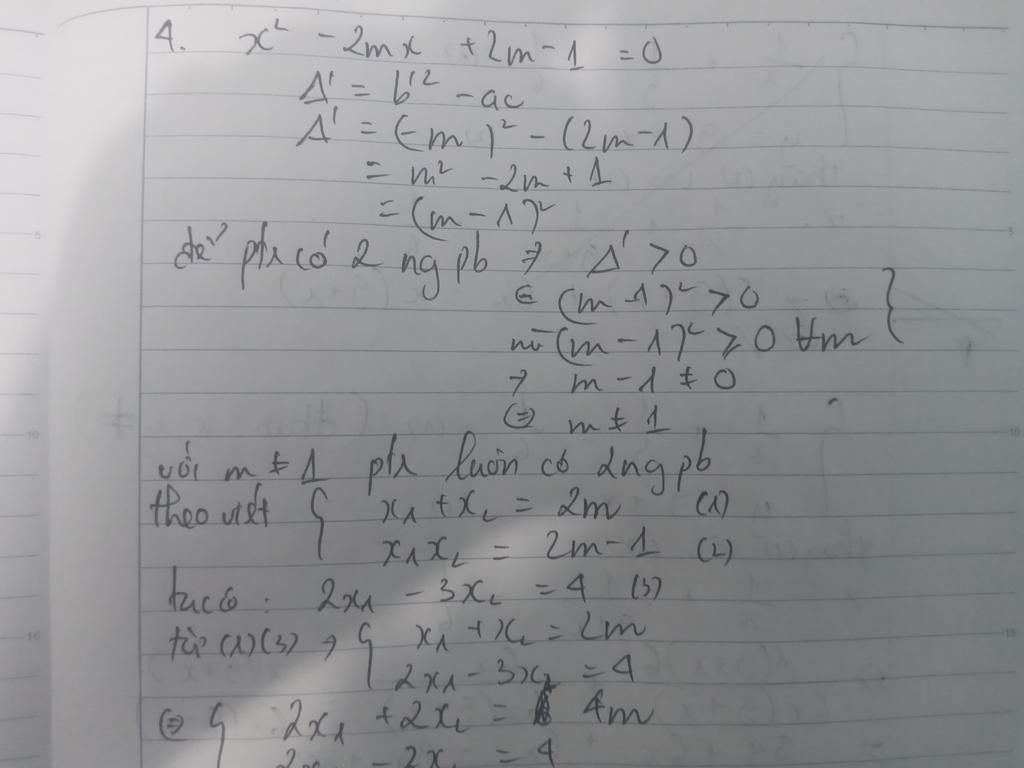 4. x² - 2mx + 2m - 1 = 0
Δ' = b'² - ac
Δ' = (-m)² - (2m-1)
= m² - 2m + 1
= (m - 1)²
để ptr có 2 ng pb => Δ' > 0
(m - 1)² > 0
mà (m - 1)² ⩾ 0 ∀m
=> m - 1 ≠ 0
<=> m ≠ 1
với m ≠ 1 ptr luôn có 2 ng pb
theo viét { x₁ + x₂ = 2m (1)
x₁x₂ = 2m - 1 (2)
ta có : 2x₁ - 3x₂ = 4 (3)
từ (1)(3) => { x₁ + x₂ = 2m
2x₁ - 3x₂ = 4
<=> { 2x₁ + 2x₂ = 4m